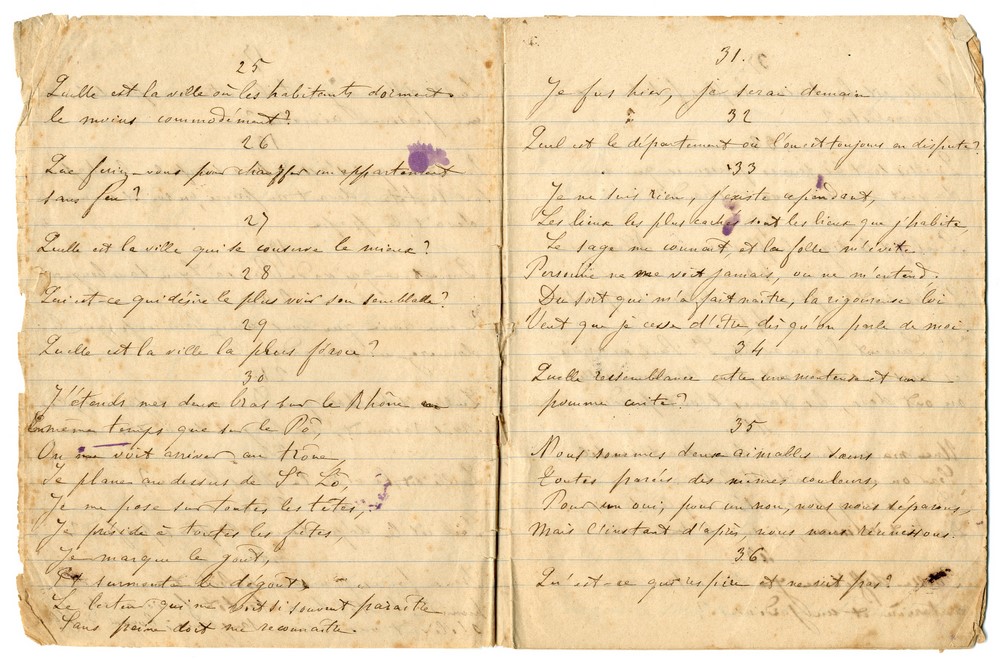 25
Quelle est la ville où les habitants dorment
le moins commodément?
26
Que feriez-vous pour chauffer un appartement
sans feu?
27
Quelle est la ville qui se conserve le mieux?
28
Qui est-ce qui désire le plus voir son semblable?
29
Quelle est la ville la plus féroce?
30
J'étends mes deux bras sur le Rhône
En même temps que sur le Pô,
On me voit arriver au trône,
Je plane au dessus de St Lô,
Je me pose sur toutes les têtes,
Je préside à toutes les fêtes,
Je marque le goût,
Et surmonte le dégoût.
Le lecteur qui me voit si souvent paraître
Sans peine doit me reconnaître.
31.
Je fus hier, je serai demain
32
Quel est le département où l'on est toujours en dispute?
33
Je ne suis rien, j'existe cependant,
Les lieux les plus cachés sont les lieux que j'habite,
Le sage me connaît, et la folle m'évite.
Personne ne me voit jamais, ou ne m'entend.
Du sort qui m'a fait naître, la rigoureuse loi
Veut que je cesse d'être, dès qu'on parle de moi.
34
Quelle ressemblance entre une menteuse et une
pomme cuite?
35
Nous sommes deux aimables sœurs
Toutes parées des mêmes couleurs;
Pour un oui, pour un non, nous nous séparons,
Mais l'instant d'après, nous nous réunissons.
36
Qu'est-ce qui respire et ne vit pas?